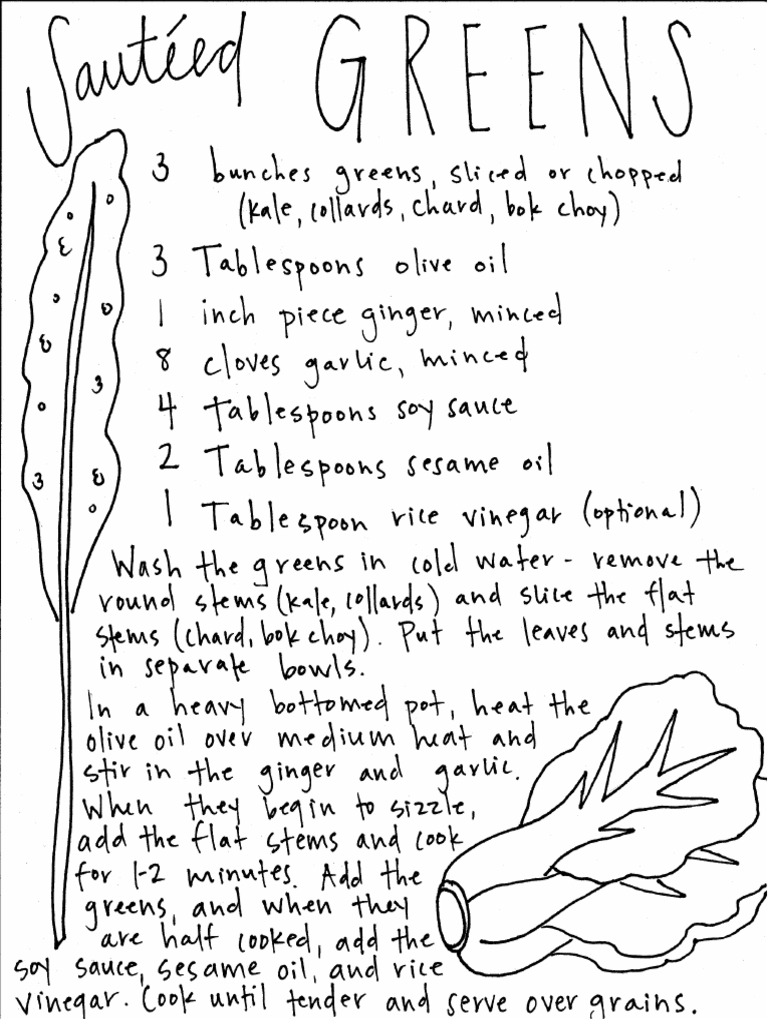 Sautéed GREENS
3 bunches greens, sliced or chopped
(kale, collards, chard, bok choy)
3 Tablespoons olive oil
1 inch piece ginger, minced
8 cloves garlic, minced
4 Tablespoons soy sauce
2 Tablespoons sesame oil
1 Tablespoon rice vinegar (optional)
Wash the greens in cold water - remove the
round stems (kale, collards) and slice the flat
stems (chard, bok choy). Put the leaves and stems
in separate bowls.
In a heavy bottomed pot, heat the
olive oil over medium heat and
stir in the ginger and garlic.
When they begin to sizzle,
add the flat stems and cook
for 1-2 minutes. Add the
greens, and when they
are half cooked, add the
soy sauce, sesame oil, and rice
vinegar. Cook until tender and serve over grains.